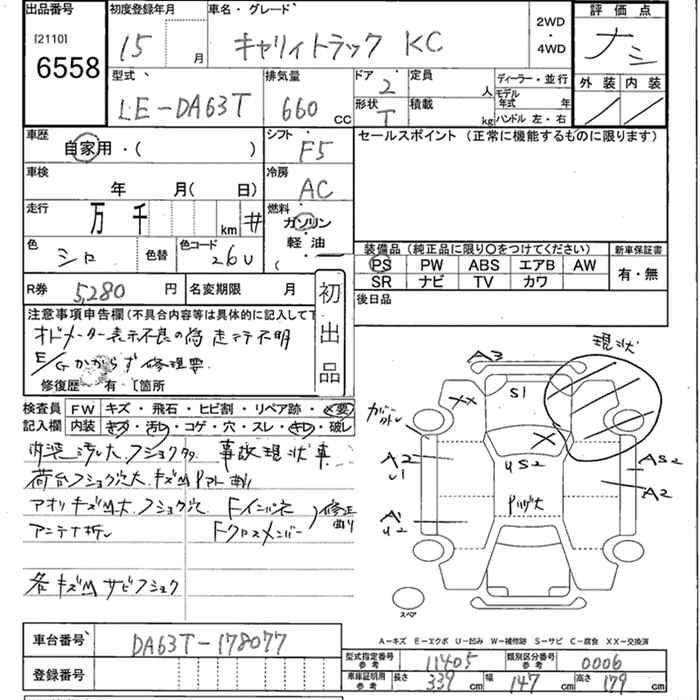 出品番号
[2110]
6558
初度登録年月
15 月
車名・グレード
キャリィトラック KC
2WD
・
4WD
評価点
ナシ
外装 内装
型式
LE-DA63T
排気量
660 CC
ドア
2
形状
T
定員
人
積載
kg
ディーラー・並行
モデル年式 年
ハンドル 左・右
車歴
自家用・( )
シフト
F5
セールスポイント (正常に機能するものに限ります)
車検
年 月( 日)
冷房
AC
走行
万 千 km #
燃料
ガソリン
軽油
(
色
シロ
色替
色コード
26U
装備品 (純正品に限り○をつけてください)
PS PW ABS エアB AW
SR ナビ TV カワ
新車保証書
有・無
R券 5,280 円
名変期限 月
初出品
後日品
注意事項申告欄 (不具合内容等は具体的に記入して下
オドメーター表示不良の為 走行不明
E/Gかからず 修理要
修復歴 有 [箇所
検査員記入欄
FW キズ・飛石・ヒビ割・リペア跡・×要
内装 キズ・汚れ・コゲ・穴・スレ・キレ・破レ
内装汚レ大 フショク大 事故現状車
荷台フショク穴大 キズM アオト曲り
アオリ キズM大 フショク穴 Fインパネ
アンテナ折レ Fクロスメンバー
修正曲り
各キズM サビフショク
現状
A3
S1
XX
X
カバー
A2
U1
US2
AS2
A2
A1
U2
スペア
A-キズ E-エクボ U-凹み W-補修跡 S-サビ C-腐食 XX-交換済
車台番号
DA63T-178077
登録番号
型式指定番号 参考 11405
類別区分番号 参考 0006
車庫証明用 参考 長さ 339 cm 幅 147 cm 高さ 179 cm